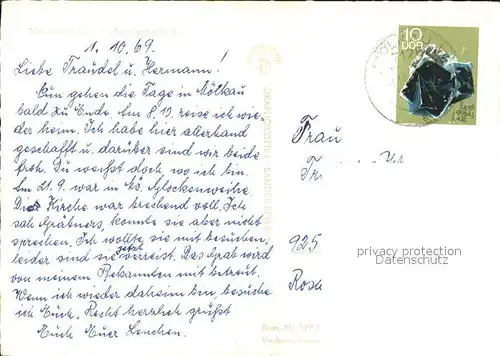 1.10.69.
Liebe Traudel u. Hermann!
Nun gehen die Tage in Mölkau
bald zu Ende. Am 8.10. reise ich wie-
der heim. Ich habe hier allerhand
geschafft u. darüber sind wir beide
froh. Du weißt doch, wo ich bin.
Am 21.9. war in Glockenweihe
Die Kirche war brechend voll. Ich
sah Gräfners, konnte sie aber nicht
sprechen. Ich wollte sie mit besuchen,
leider sind sie jetzt verreist. Das Grab wird
von meinem Bekannten mit betreut.
Wenn ich wieder daheim bin, besuche
ich Euch. Recht herzlich grüßt
Euch Euer Lenchen.
10
DDR
Frau
925
Rosa
privacy protection
Datenschutz